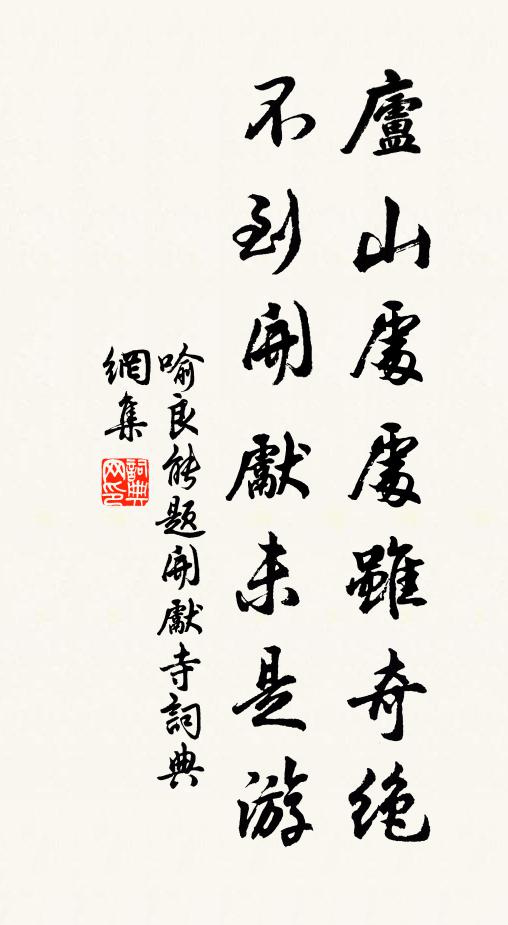 廬山處處雖奇絕
不到開獻未是游
喻良能題開獻寺詞典
網集
詞典
网印